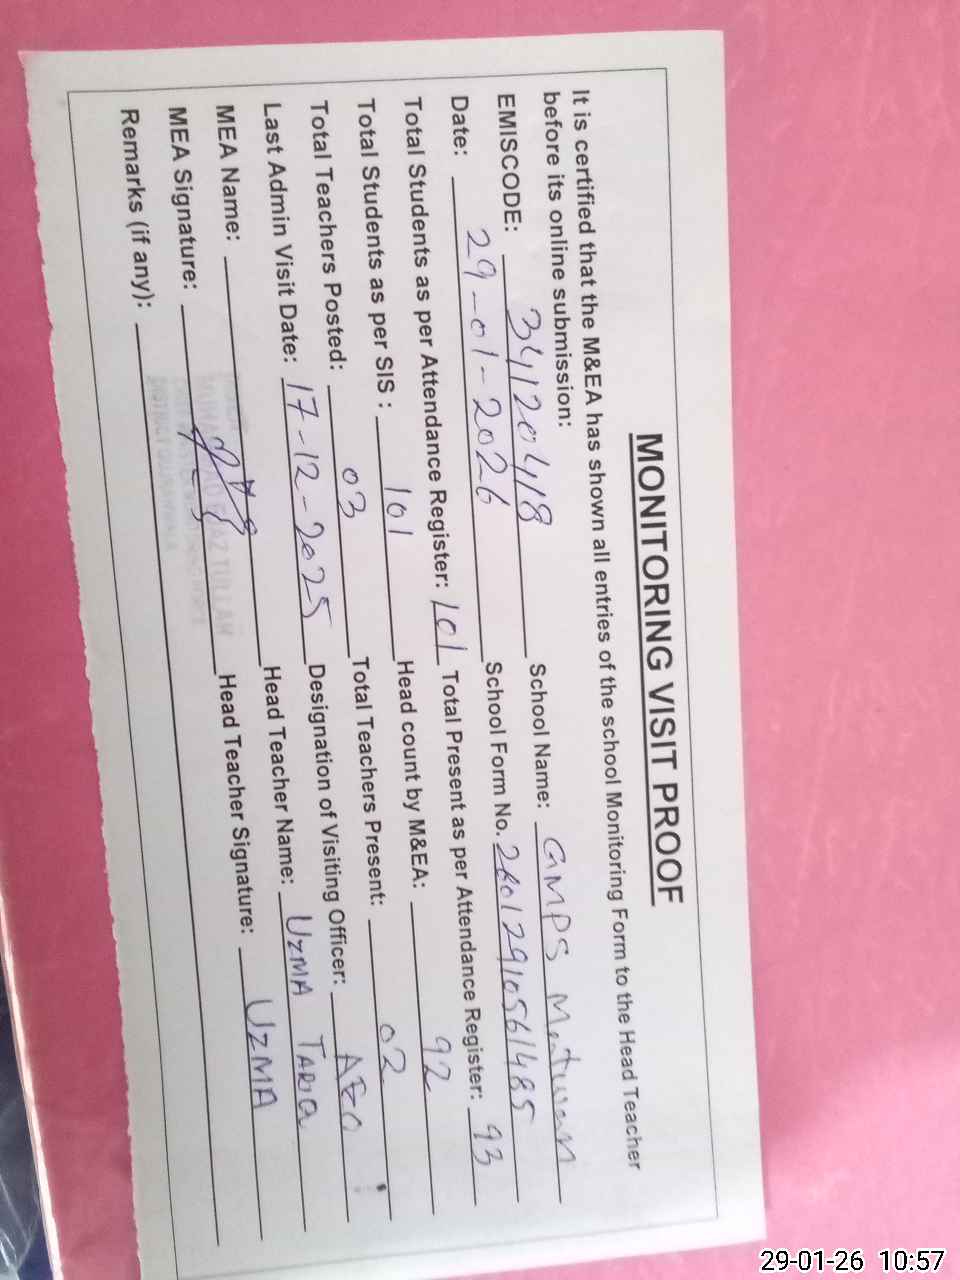 MONITORING VISIT PROOF
It is certified that the M&EA has shown all entries of the school Monitoring Form to the Head Teacher
before its online submission:
EMISCODE: 34120418 School Name: GMPS
Date: 29-01-2026 School Form No. 26012910561485
Total Students as per Attendance Register: 101 Total Present as per Attendance Register: 93
Total Students as per SIS : 101 Head count by M&EA: 92
Total Teachers Posted: 03 Total Teachers Present: 02
Last Admin Visit Date: 17-12-2025 Designation of Visiting Officer: AEO
MEA Name: Head Teacher Name: UZMA TARIQ
MEA Signature: Head Teacher Signature: UZMA
Remarks (if any):
29-01-26 10:57